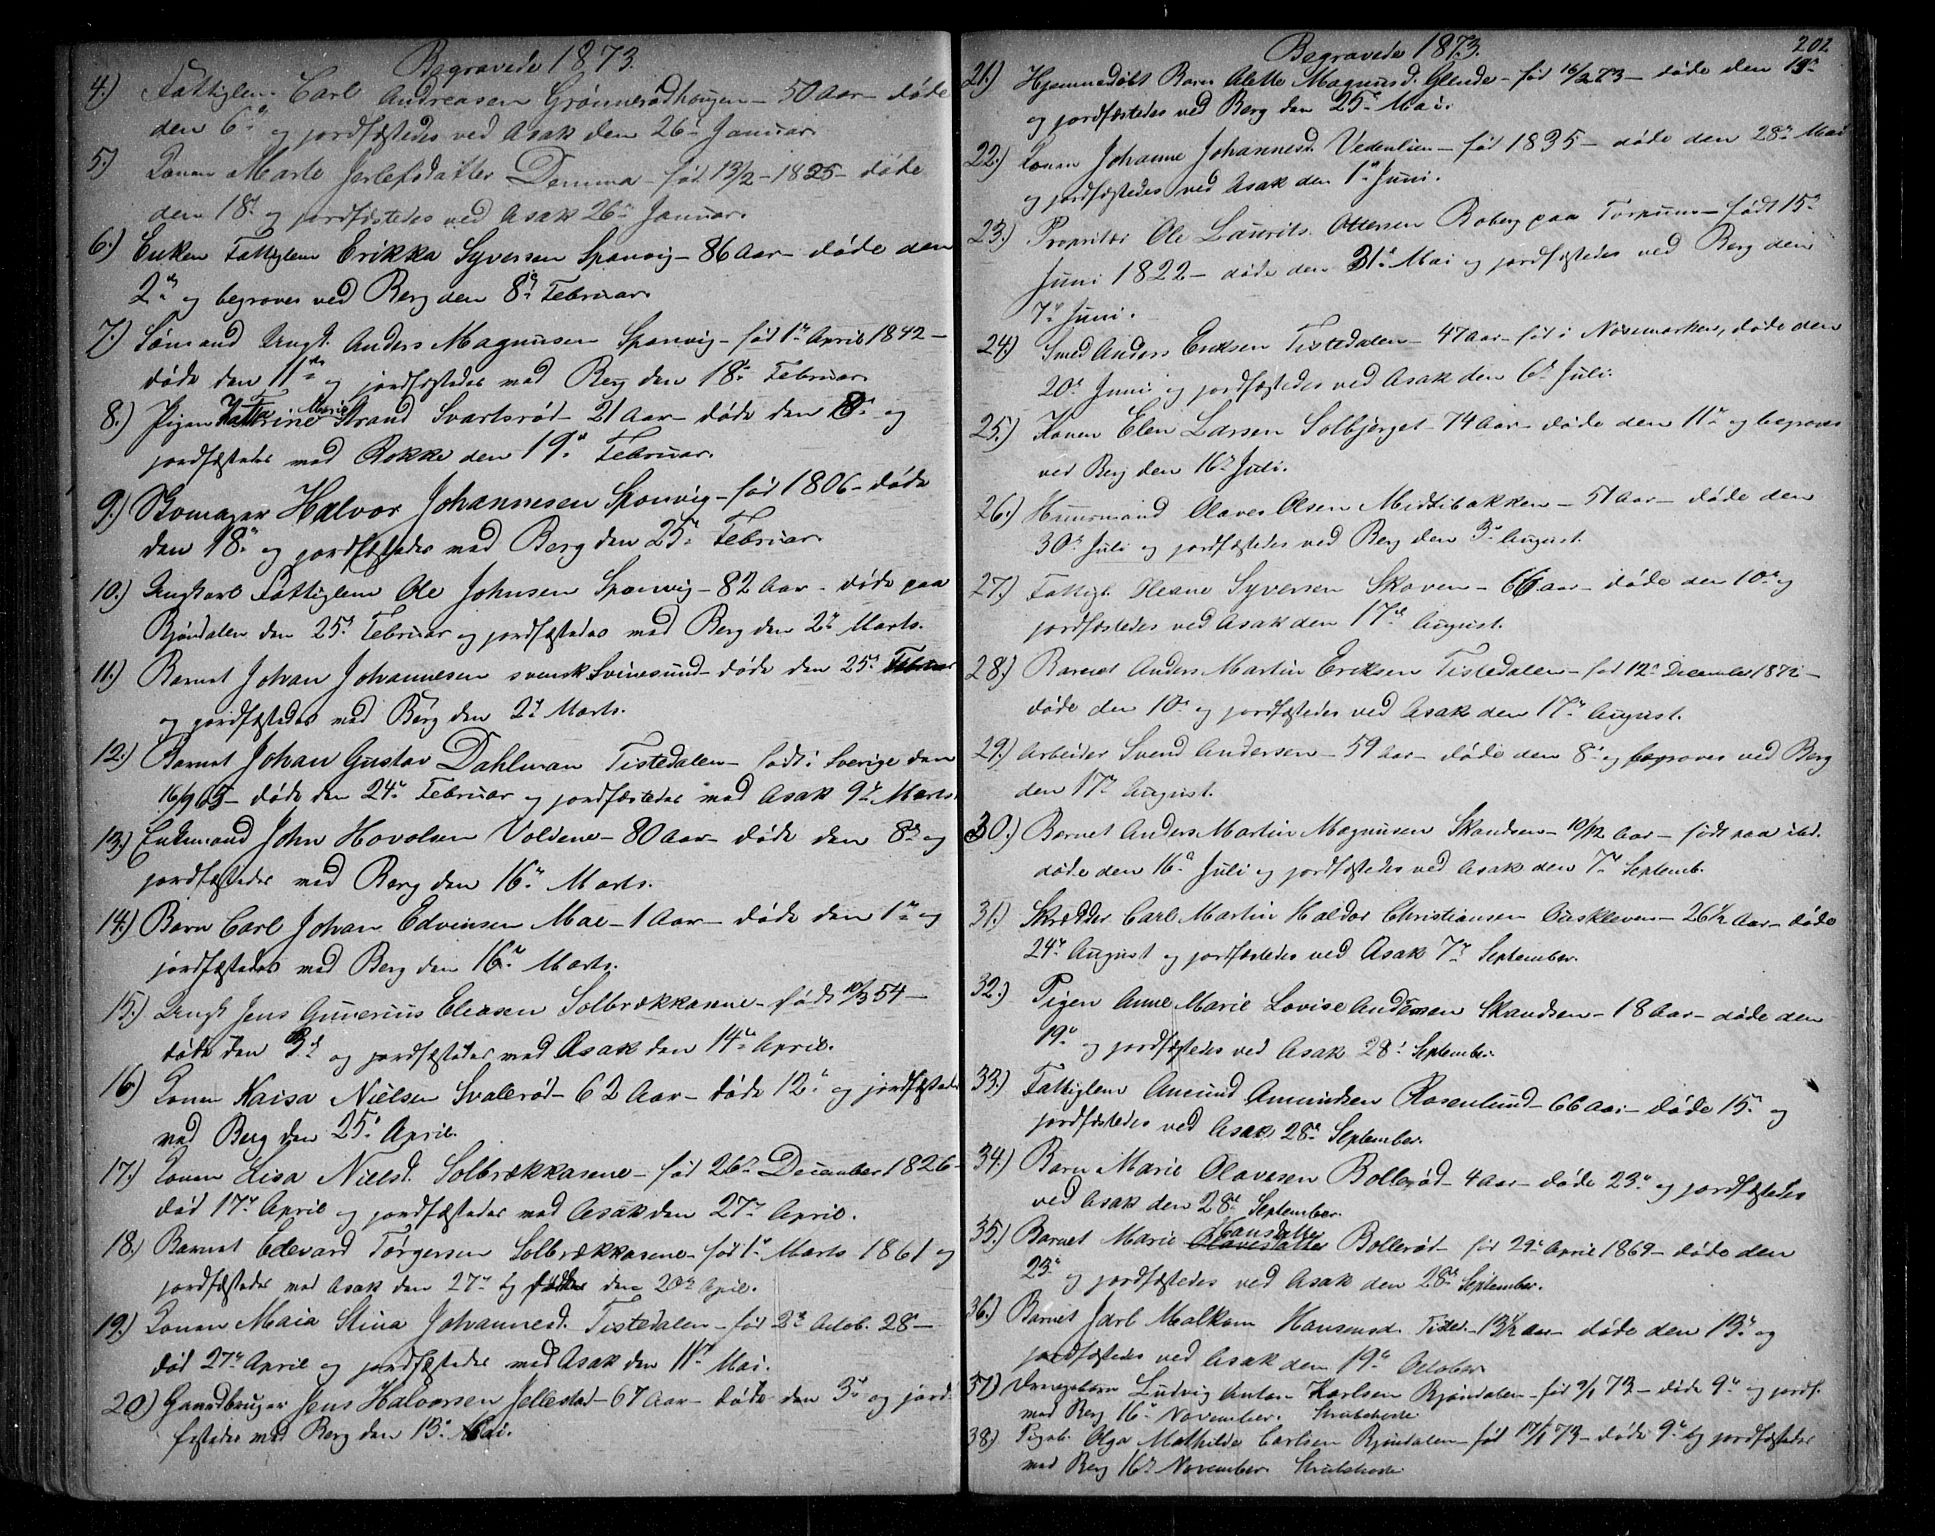 Begravede 1873.
4.) Fattiglem Carl Andreasen Grønnerødhaugen - 50 Aar - døde
den 6te og jordfæstedes ved Asak den 26de Januar.
5.) Konen Marte Jerlefsdatter Demma - fød 13/2 - 1825 - døde
den 18de og jordfæstedes ved Asak 26de Januar.
6.) Enken Fattiglem Erikka Syversen Sponvig - 86 Aar - døde den
2den og begroves ved Berg den 8de Februar.
7.) Sømand Ungk. Anders Magnusen Sponvig - fød 1ste April 1842 -
døde den 11te og jordfæstedes ved Berg den 18de Februar.
8.) Pigen Kattrine Marie Strand Svartsrød - 21 Aar - døde den 8de og
jordfæstedes ved Rokke den 19de Februar.
9.) Skomager Halvor Johannesen Sponvig - fød 1806 - døde
den 18de og jordfæstedes ved Berg den 25de Februar.
10.) Ungkarl Fattiglem Ole Johnsen Sponvig - 82 Aar - døde paa
Bjøndalen den 25de Februar og jordfæstedes ved Berg den 2den Marts.
11.) Barnet Johan Johannesen svensk Svinesund - døde den 25de Februar
og jordfæstedes ved Berg den 2den Marts.
12.) Barnet Johan Gustav Dahlman Tistedalen - født i Sverige den
16/9 65 - døde den 24de Februar og jordfæstedes ved Asak 9de Marts.
13.) Enkemand John Hovolsen Voldene - 80 Aar - døde den 8de og
jordfæstedes ved Berg den 16de Marts.
14.) Barn Carl Johan Edvinsen Mae - 1 Aar - døde den 1ste og
jordfæstedes ved Berg den 16de Marts.
15.) Ungk Jens Gunerius Eliasen Solbrækkasene - født 10/3 54 -
døde den 3die og jordfæstedes ved Asak den 14de April.
16.) Konen Kaisa Nielsen Svalerød - 62 Aar - døde 12te og jordfæstedes
ved Berg den 25de April.
17.) Konen Lisa Nielsd. Solbrækkasene - fød 26de December 1826 -
død 17de April og jordfæstedes ved Asak den 27de April.
18.) Barnet Edevard Tørgersen Solbrækkasene - fød 1ste Marts 1861 og
jordfæstedes ved Asak den 27de og døde den 20de April.
19.) Konen Maia Stina Johannesd. Tistedalen - fød 2den Octob. 28 -
død 27de April og jordfæstedes ved Asak den 11te Mai.
20.) Gaardbruger Jens Halvorsen Jellestad - 67 Aar - døde den 3die og jord-
festedes ved Berg den 13de Mai.
Begravede 1873. 202
21.) Hjemmedøbt Barn Alette Magnusd. Glende - fød 16/2 73 - døde den 19de
og jordfæstedes ved Berg den 25de Mai.
22.) Konen Johanne Johannesd. Vedenlien - fød 1835 - døde den 28de Mai
og jordfæstedes ved Asak den 1ste Juni.
23.) Proprietær Ole Laurits Ottersen Boberg paa Torpum - født 15de
Juni 1822 - døde den 31te Mai og jordfæstedes ved Berg den
7de Juni.
24.) Smed Anders Eriksen Tistedalen - 47 Aar - fød i Nøssemarken, døde den
20de Juni og jordfæstedes ved Asak den 6te Juli.
25.) Konen Elen Larsen Solbjerget - 74 Aar - døde den 11te og begroves
ved Berg den 16de Juli.
26.) Huusmand Olaves Olsen Midtibakken - 51 Aar - døde den
30te Juli og jordfæstedes ved Berg den 3die August.
27.) Fattigl. Syversen Skoven - 66 Aar - døde den 10de og
jordfæstedes ved Asak den 17de August.
28.) Barnet Anders Martin Eriksen Tistedalen - fød 12te December 1872 -
døde den 10de og jordfæstedes ved Asak den 17de August.
29.) Arbeider Svend Andersen - 59 Aar - døde den 8de og begroves ved Berg
den 17de August.
30.) Barnet Anders Martin Magnusen Skandsen - 10/12 Aar - født paa ibd.
døde den 16de Juli og jordfæstedes ved Asak den 7de Septemb.
31.) Skrædder Carl Martin Haldor Christiansen - 26 1/2 Aar - døde
24de August og jordfæstedes ved Asak 7de September.
32.) Pigen Anne Marie Lovise Andersen Skandsen - 18 Aar - døde den
19de og jordfæstedes ved Asak 28de September.
33.) Fattiglem Amund Amundsen Rosenlund - 66 Aar - døde 15de og
jordfæstedes ved Asak 28de September.
34.) Barn Marie Olavesen Bollerød - 4 Aar - døde 23de og jordfæstedes
ved Asak den 28de September.
35.) Barnet Marie Olavesdatter Hansdatter Bollerød - fød 29de April 1869 - døde den
23de og jordfæstedes ved Asak den 28de September.
36.) Barnet Jarl Malkom Hansensd. Tisted. - 13 1/2 Aar - døde den 13de og
jordfæstedes ved Asak den 19de October
37.) Drengebarn Ludvig Anton Karlsen Bjøndalen - fød 9/1 73 - døde 9de og jordf.
ved Berg 16de November. Strubehoste
38.) Pigeb. Olga Mathilde Carlsen Bjøndalen - fød 17/1 73 - døde 9de og jordfæstedes
ved Berg 16de November. Strubehoste